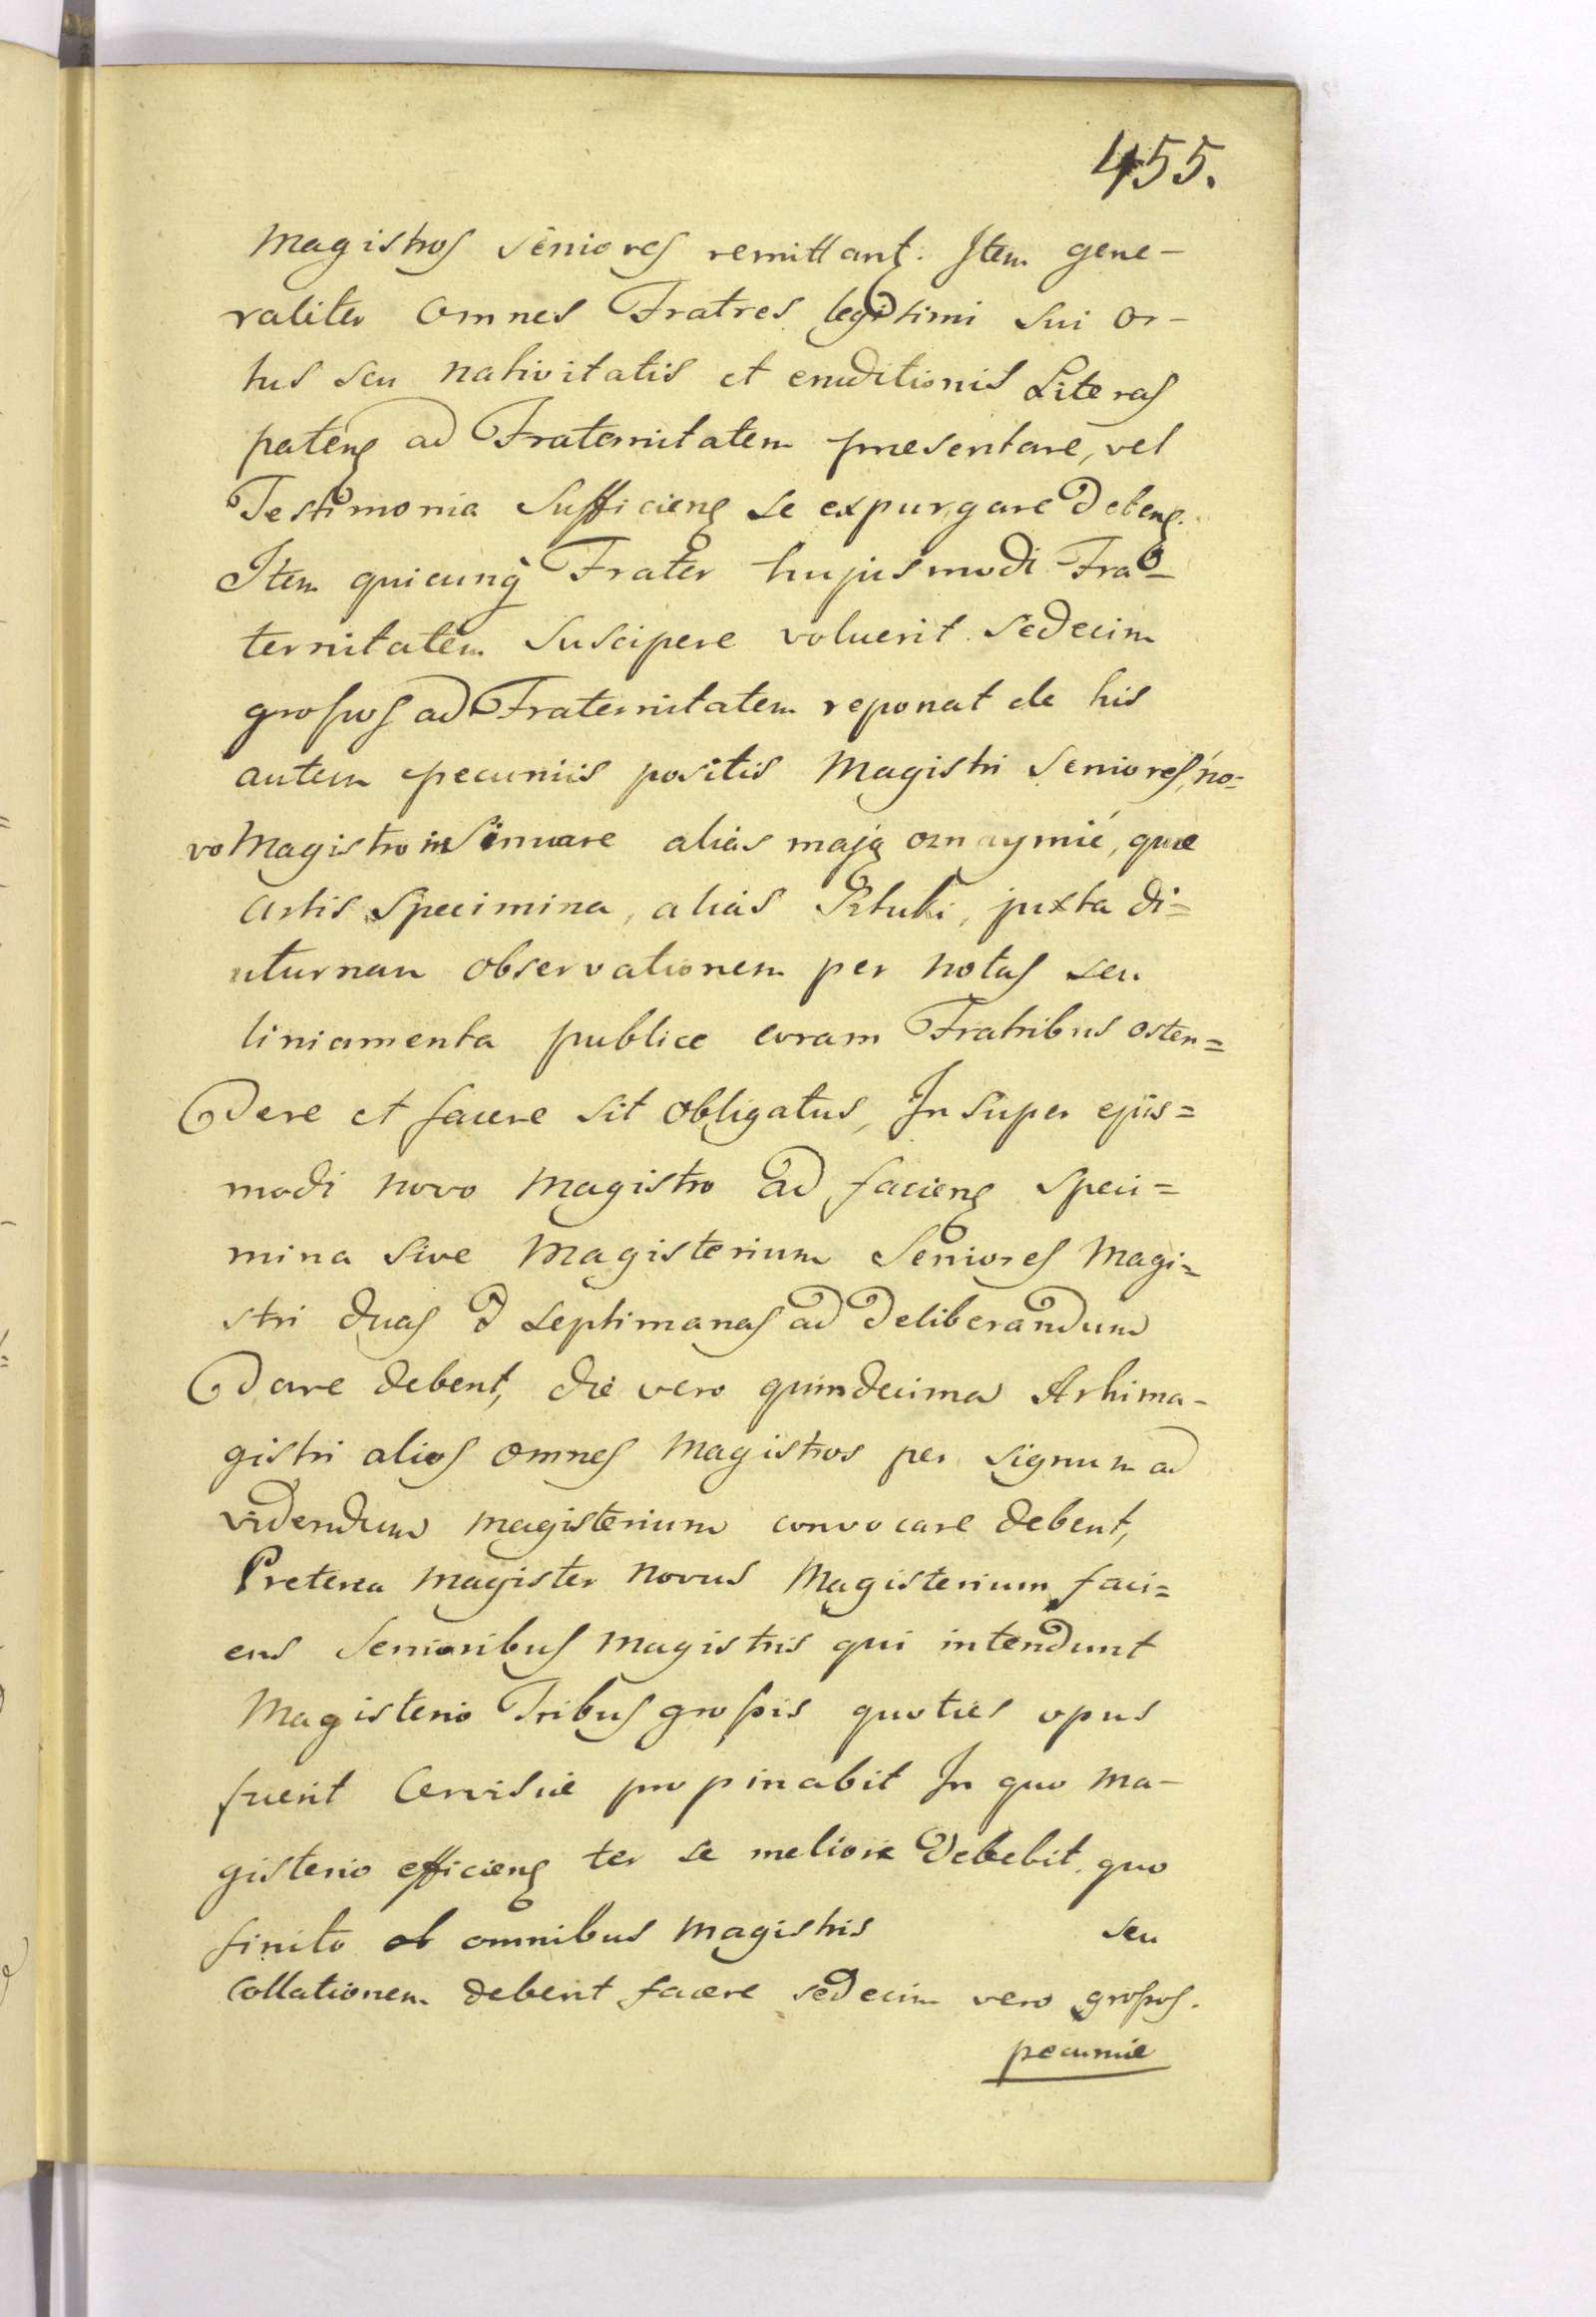 455.
Magistros seniores remittant. Item gene-
raliter Omnes Fratres legitimi sui or-
tus seu nativitatis et eruditionis Literas
patenς ad Fraternitatem presentare, vel
Testimonia Sufficienς se expurgare debenς.
Item quicunq Frater hujusmodi Fra-
ternitatem Suscipere voluerit Sedecim
grossos ad Fraternitatem reponat de his
autem pecuniis positis Magistri Seniores, no-
vo Magistro insinuare aliàs mają oznaymić, quae
artis Specimina, aliàs Sztuki, juxta di=
uturnam observationem per notas seu
liniamenta publice coram Fratribus osten=
dere et facere sit obligatus, In super ejus=
modi novo Magistro ad facienς speci=
mina sive Magisterium Seniores Magi=
stri duas septimanas ad deliberandum
dare debent, die vero quindecima Arhima-
gistri alios omnes Magistros per signum ad
videndum magisterium convocare debent,
Preterea Magister Novus Magisterium faci=
ens Senioribus Magistris qui intendunt
Magisterio Tribus grossis quoties opus
fuerit Cervisie propinabit In quo Ma-
gisterio efficienς ter se meliore debebit quo
finito ab omnibus Magistris seu
Collationem debent facere sedecim vero grossos.
pecunie